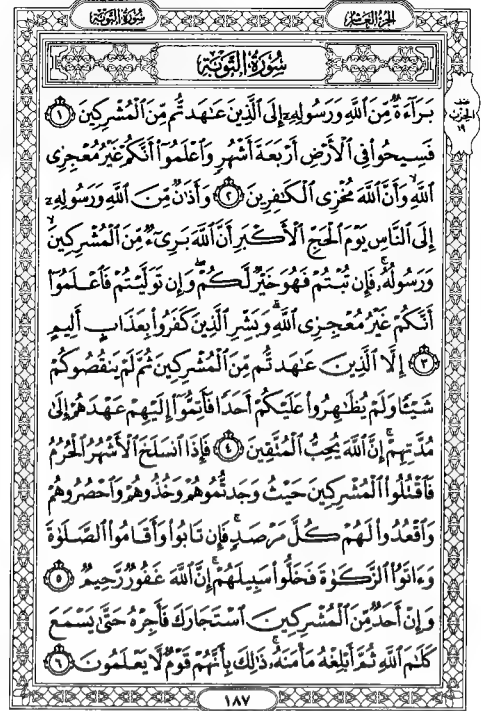 سُورَةُ التَّوْبَةِ
الجُزءُ العَاشِرُ
سُورَةُ التَّوْبَةِ
نصف
الحزب
١٩
بَرَآءَةٌ مِّنَ ٱللَّهِ وَرَسُولِهِۦٓ إِلَى ٱلَّذِينَ عَٰهَدتُّم مِّنَ ٱلْمُشْرِكِينَ ١
فَسِيحُوا۟ فِى ٱلْأَرْضِ أَرْبَعَةَ أَشْهُرٍ وَٱعْلَمُوٓا۟ أَنَّكُمْ غَيْرُ مُعْجِزِى
ٱللَّهِ ۙ وَأَنَّ ٱللَّهَ مُخْزِى ٱلْكَٰفِرِينَ ٢ وَأَذَٰنٌ مِّنَ ٱللَّهِ وَرَسُولِهِۦٓ
إِلَى ٱلنَّاسِ يَوْمَ ٱلْحَجِّ ٱلْأَكْبَرِ أَنَّ ٱللَّهَ بَرِىٓءٌ مِّنَ ٱلْمُشْرِكِينَ ۙ
وَرَسُولُهُۥ ۚ فَإِن تُبْتُمْ فَهُوَ خَيْرٌ لَّكُمْ ۖ وَإِن تَوَلَّيْتُمْ فَٱعْلَمُوٓا۟
أَنَّكُمْ غَيْرُ مُعْجِزِى ٱللَّهِ ۗ وَبَشِّرِ ٱلَّذِينَ كَفَرُوا۟ بِعَذَابٍ أَلِيمٍ
٣ إِلَّا ٱلَّذِينَ عَٰهَدتُّم مِّنَ ٱلْمُشْرِكِينَ ثُمَّ لَمْ يَنقُصُوكُمْ
شَيْـًٔا وَلَمْ يُظَٰهِرُوا۟ عَلَيْكُمْ أَحَدًا فَأَتِمُّوٓا۟ إِلَيْهِمْ عَهْدَهُمْ إِلَىٰ
مُدَّتِهِمْ ۚ إِنَّ ٱللَّهَ يُحِبُّ ٱلْمُتَّقِينَ ٤ فَإِذَا ٱنسَلَخَ ٱلْأَشْهُرُ ٱلْحُرُمُ
فَٱقْتُلُوا۟ ٱلْمُشْرِكِينَ حَيْثُ وَجَدتُّمُوهُمْ وَخُذُوهُمْ وَٱحْصُرُوهُمْ
وَٱقْعُدُوا۟ لَهُمْ كُلَّ مَرْصَدٍ ۚ فَإِن تَابُوا۟ وَأَقَامُوا۟ ٱلصَّلَوٰةَ
وَءَاتَوُا۟ ٱلزَّكَوٰةَ فَخَلُّوا۟ سَبِيلَهُمْ ۚ إِنَّ ٱللَّهَ غَفُورٌ رَّحِيمٌ ٥
وَإِنْ أَحَدٌ مِّنَ ٱلْمُشْرِكِينَ ٱسْتَجَارَكَ فَأَجِرْهُ حَتَّىٰ يَسْمَعَ
كَلَٰمَ ٱللَّهِ ثُمَّ أَبْلِغْهُ مَأْمَنَهُۥ ۚ ذَٰلِكَ بِأَنَّهُمْ قَوْمٌ لَّا يَعْلَمُونَ ٦
١٨٧